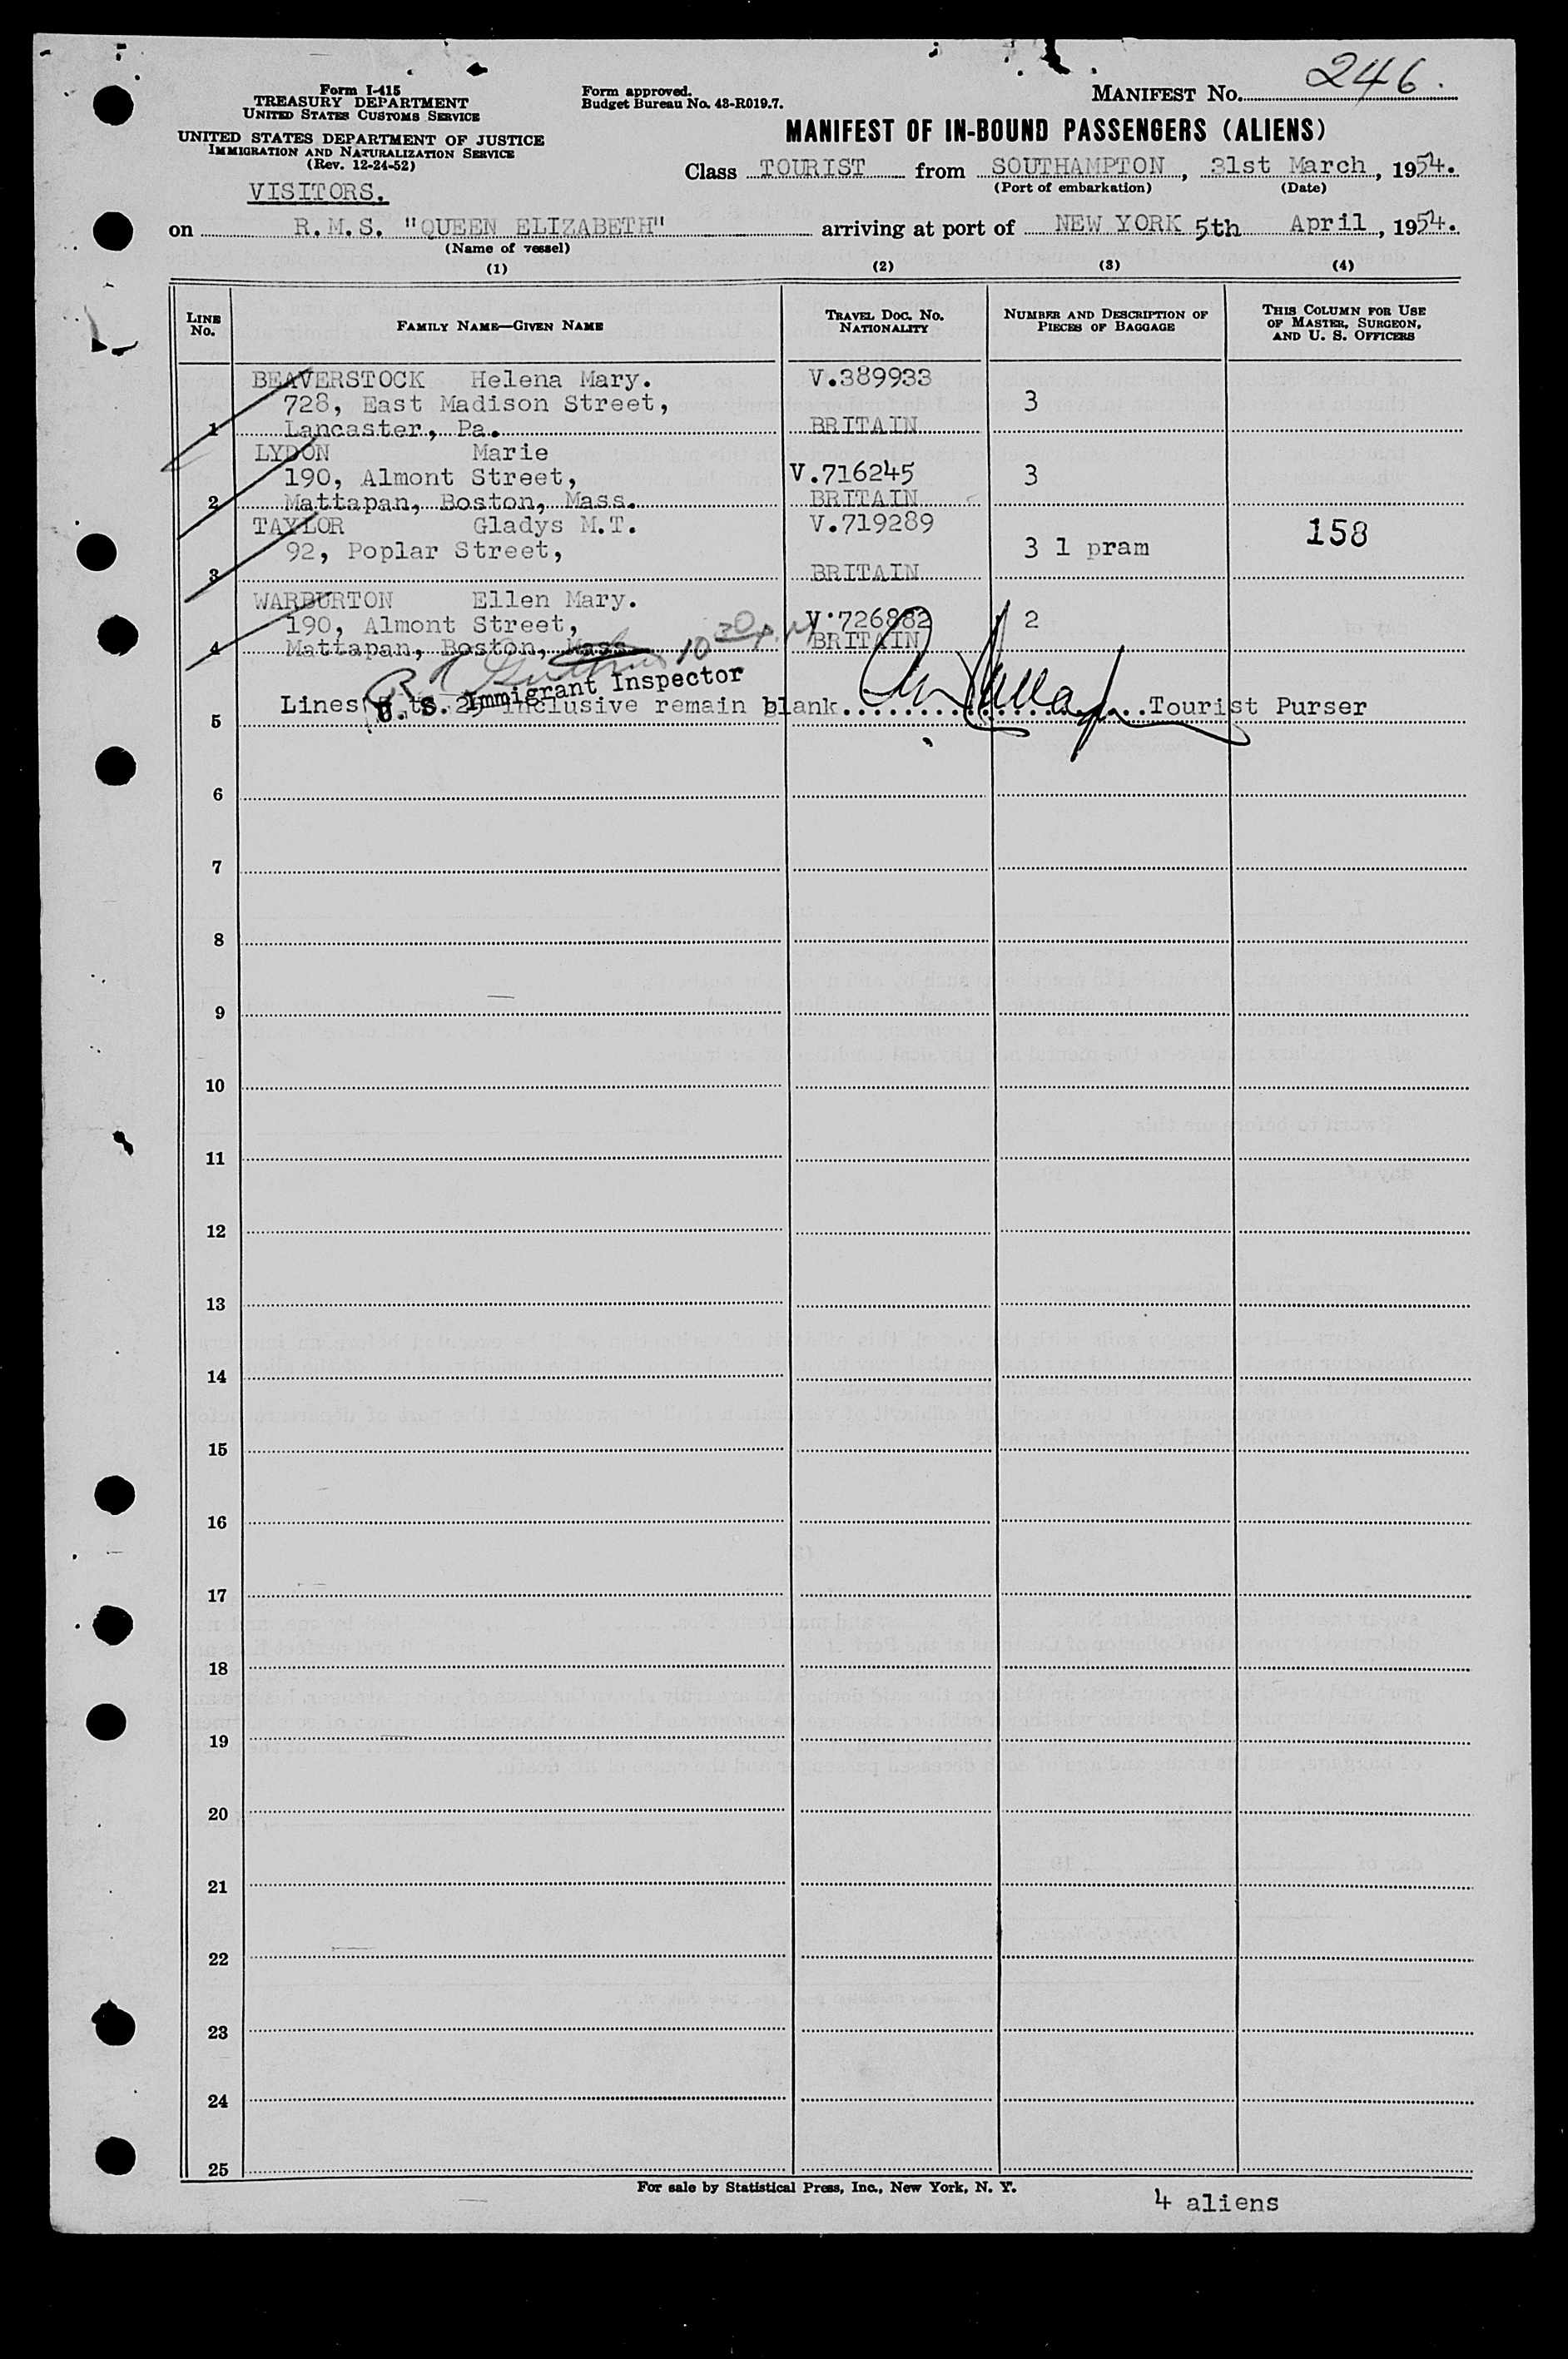 246.
Form I-415
TREASURY DEPARTMENT
UNITED STATES CUSTOMS SERVICE
UNITED STATES DEPARTMENT OF JUSTICE
IMMIGRATION AND NATURALIZATION SERVICE
(Rev. 12-24-52)
VISITORS.
Form approved.
Budget Bureau No. 43-R019.7.
MANIFEST NO.
MANIFEST OF IN-BOUND PASSENGERS (ALIENS)
Class TOURIST from SOUTHAMPTON, 31st March, 1954.
(Port of embarkation) (Date)
on R.M.S. "QUEEN ELIZABETH" arriving at port of NEW YORK 5th April, 1954.
(Name of vessel)
(1) (2) (3) (4)
LINE NO.
FAMILY NAME—GIVEN NAME
TRAVEL DOC. NO.
NATIONALITY
NUMBER AND DESCRIPTION OF
PIECES OF BAGGAGE
THIS COLUMN FOR USE
OF MASTER, SURGEON,
AND U. S. OFFICERS
BEAVERSTOCK Helena Mary. V.389933
728, East Madison Street, 3
1 Lancaster, Pa. BRITAIN
LYDON Marie
190, Almont Street, V.716245 3
2 Mattapan, Boston, Mass. BRITAIN
TAYLOR Gladys M.T. V.719289 158
92, Poplar Street, 3 1 pram
3 BRITAIN
WARBURTON Ellen Mary.
190, Almont Street, V.726882 2
4 Mattapan, Boston, Mass. BRITAIN
10 30 p.m
U. S. Immigrant Inspector
5 Lines to 25 inclusive remain blank Tourist Purser
6
7
8
9
10
11
12
13
14
15
16
17
18
19
20
21
22
23
24
25
For sale by Statistical Press, Inc., New York, N. Y.
4 aliens